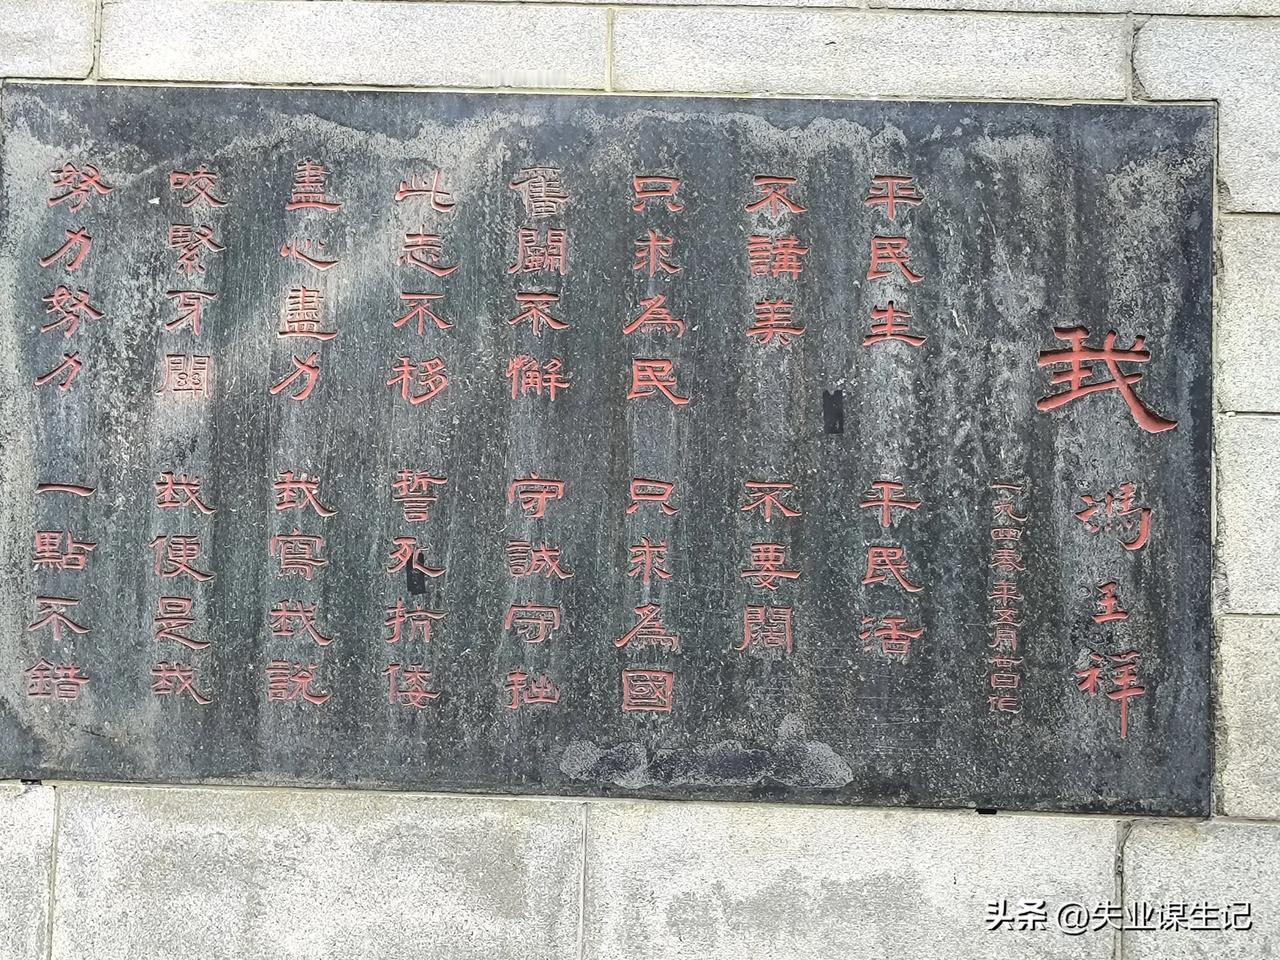 我 馮玉祥
一九四零年五月卅日作
平民生 平民活
不講美 不要闊
只求為民 只求為國
奮鬭不懈 守誠守拙
此志不移 誓死抗倭
盡心盡力 我寫我說
咬緊牙關 我便是我
努力努力 一點不錯
头条 @失业谋生记